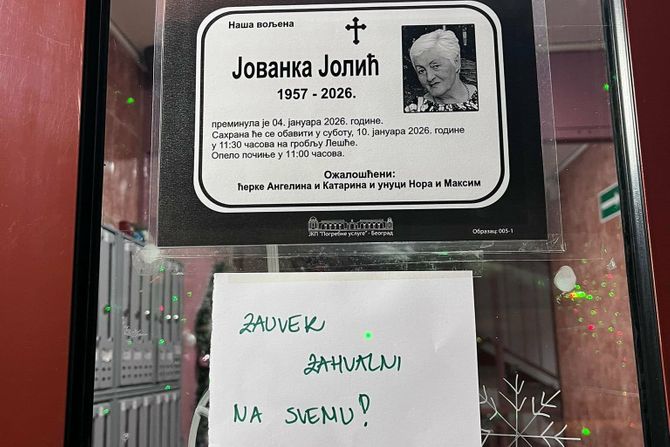 Наша вољена
Јованка Јолић
1957 - 2026.
преминула је 04. јануара 2026. године.
Сахрана ће се обавити у суботу, 10. јануара 2026. године
у 11:30 часова на гробљу Лешће.
Опело почиње у 11:00 часова.
Ожалошћени:
ћерке Ангелина и Катарина и унуци Нора и Максим
ЈКП "Погребне услуге" - Београд
Образац 005-1
ZAUVEK
ZAHVALNI
NA SVEMU!